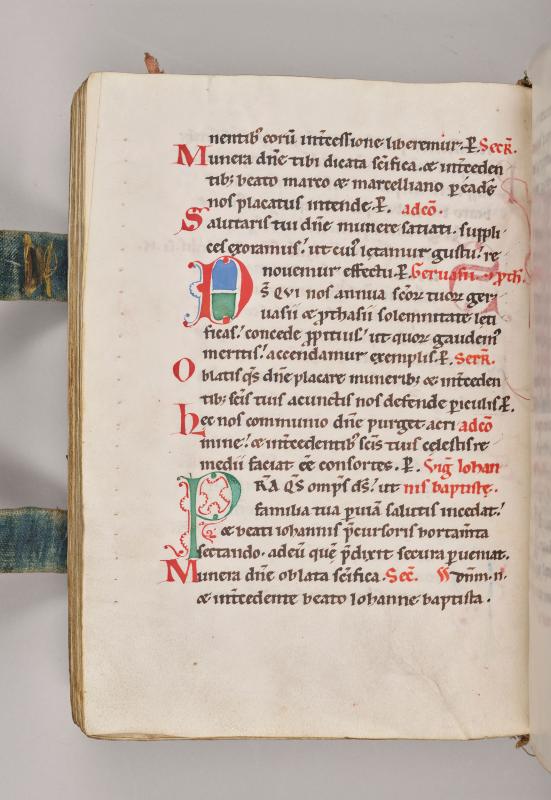 nentib; eorū int̄cessione liberemur. P̲. Secr̄.
Munera dn̄e tibi dicata sc̄ifica. & int̄ceden
tib; beato marco & marcelliano p̲ eadē
nos placatus intende. P̲. ad cō.
Salutaris tui dn̄e munere satiati. suppli-
ces exoramus! ut cui᷒ letamur gustu! re
nouemur effectu. P̲. Geruasii & p̲th.
DS̄ QVI nos annua sc̄or̄ tuor̄ ger-
uasii & p̲thasii solemnitate leti
ficas! concede p̲pitius! ut quor̄ gaudem᷒
meritis! accendamur exemplis. P̲. Secr̄.
Oblatis q̄s dn̄e placare munerib; & int̄ceden
tib; sc̄is tuis a cunctis nos defende p̲iculis. P̲.
Hec nos communio dn̄e purget a cri ad cō
mine! & int̄cedentib; sc̄is tuis celestis re
medii faciat ēē consortes. P̲. Viḡ Iohan
PRĀ Q̄S omp̄s ds̄! ut nis baptistę.
familia tua p̲ uiā salutis incedat!
& beati iohannis p̄cursoris hortam̄ta
sectando. ad eū quē p̄dixit secura p̲ueniat.
Munera dn̄e oblata sc̄ifica. Sec̄. P̲ dn̄m. n̄.
& int̄cedente beato Iohanne baptista.